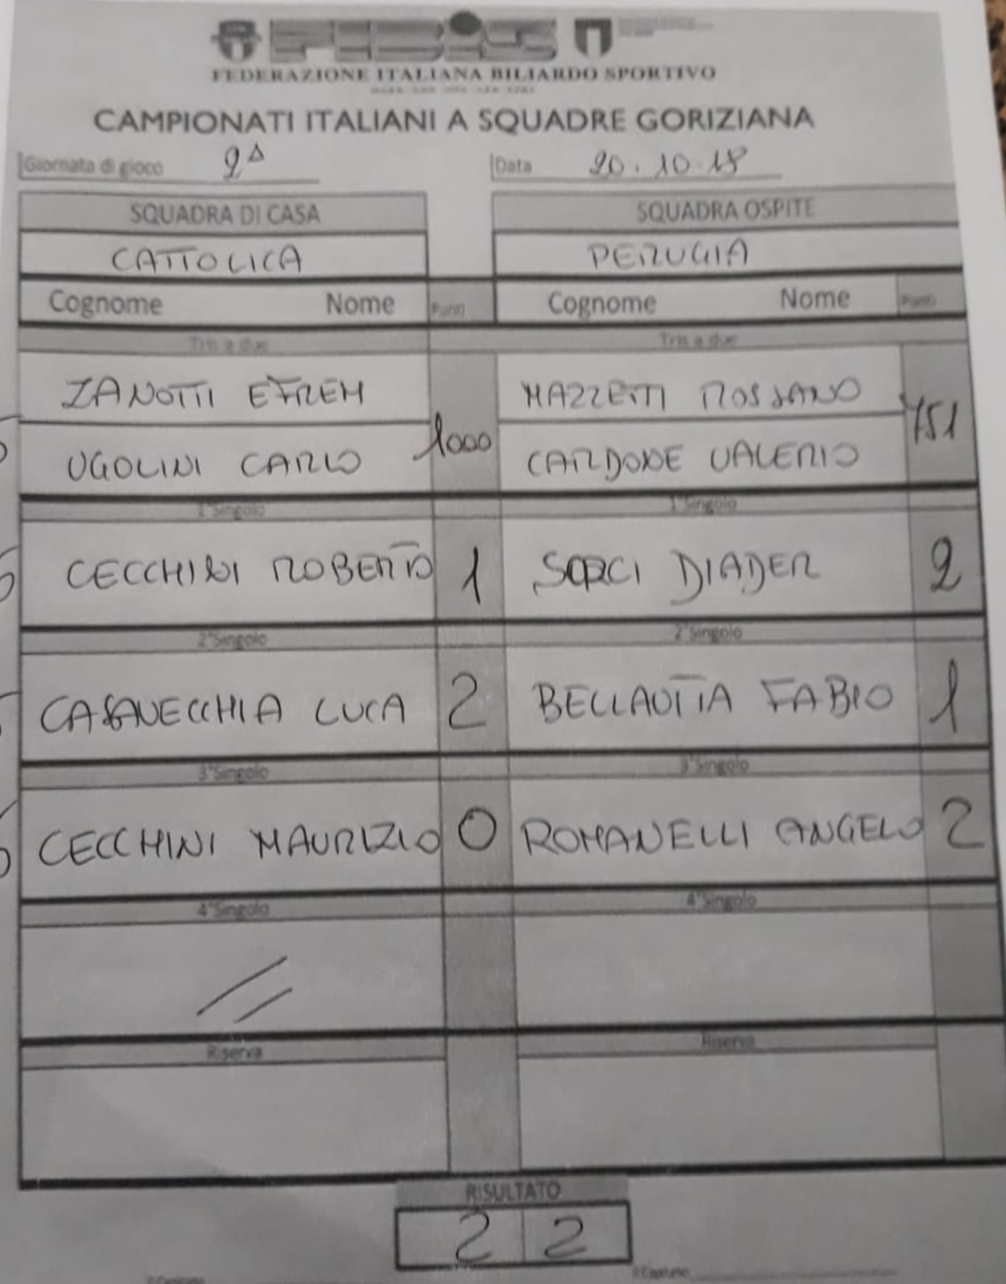 FIBiS
FEDERAZIONE ITALIANA BILIARDO SPORTIVO
CAMPIONATI ITALIANI A SQUADRE GORIZIANA
Giornata di gioco 2^ Data 20.10.18
SQUADRA DI CASA SQUADRA OSPITE
CATTOLICA PERUGIA
Cognome Nome Punti Cognome Nome Punti
Tris a due Tris a due
ZANOTTI EFREM MAZZETTI ROSSANO
1000 751
UGOLINI CARLO CARDONE VALERIO
1°Singolo 1°Singolo
CECCHINI ROBERTO 1 SORCI DIADER 2
2°Singolo 2°Singolo
CASAVECCHIA LUCA 2 BELLAVITA FABIO 1
3°Singolo 3°Singolo
CECCHINI MAURIZIO 0 ROMANELLI ANGELO 2
4°Singolo 4°Singolo
Riserva Riserva
RISULTATO
2 2